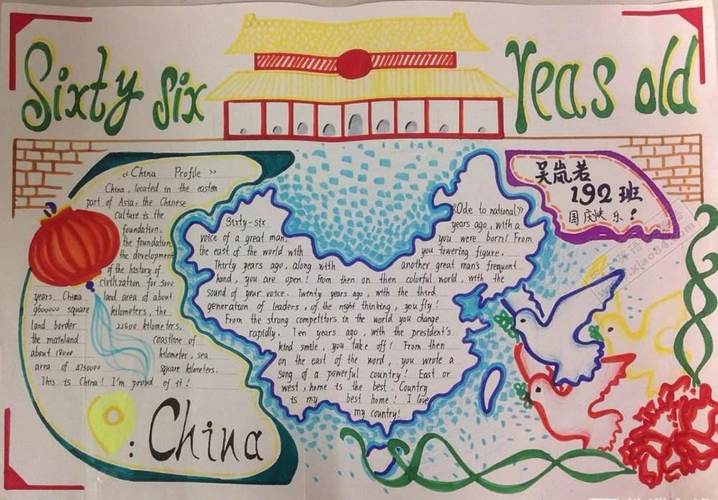 Sixty six Yeas old
«China Profile»
China, located in the easten
part of Asia, the Chinese
culture is the
foundation.
the foundation,
the development
of the history of
civilization for 5000
years. China land area of about
9600000 square kilometers, the
land border 22800 kilometers.
the mainland coastline of
about 18000 kilometer, sea
area of 4730000 square kilometers.
This is China! I'm proud of it!
: China
«Ode to national»
Sixty-six years ago, with a
voice of a great man, you were born! From
the east of the world with you towering figure.
Thirty years ago, along with another great man's frequent
hand, you are open! From then on then colorful world, with the
sound of your voice. Twenty years ago, with the third
generation of leaders, of the night thinking, you fly!
From the strong competitors in the world you change
rapidly. Ten years ago, with the president's
kind smile, you take off! From then
on the east of the word, you wrote a
song of a powerful country! East or
west, home is the best. Country
is my best home! I love
my country!
吴岚若
192班
国庆快乐!